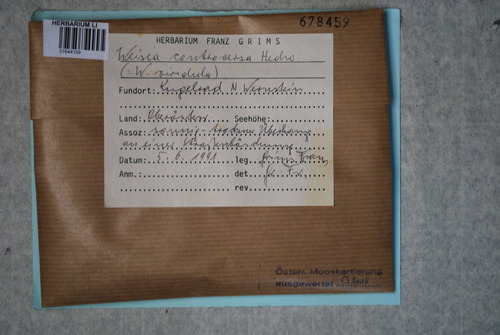 HERBARIUM LI
678459
HERBARIUM FRANZ GRIMS
Weisia controversa Hedw.
(= W. viridula)
Fundort: Ingelsbad N Wernstein
Land: Oberösterr. Seehöhe:
Assoz: sonnig-trockene
an einer Straßenböschung
Datum: 5. 6. 1991 leg. Grims Franz
Anm.: det. Gr. Fr.
rev.
Österr. Mooskartierung
ausgewertet